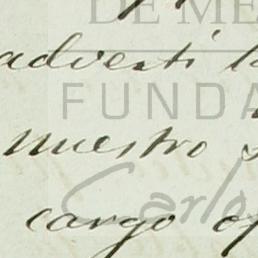 DE ME
adverti l
FUNDA
nuestro s
Carlo
cargo of